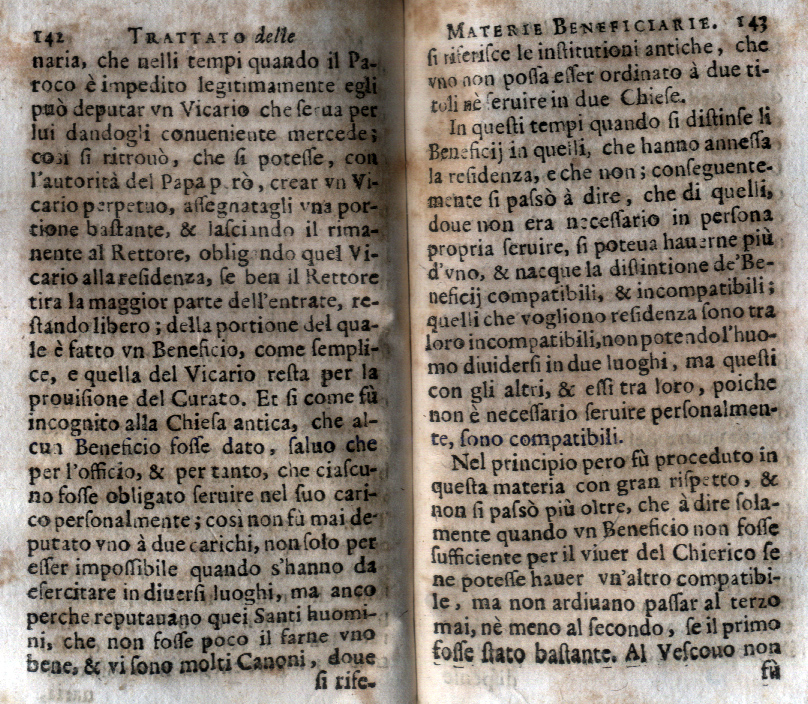 142 TRATTATO delle
naria, che nelli tempi quando il Pa-
roco è impedito legitimamente egli
può deputar vn Vicario che serua per
lui dandogli conueniente mercede;
così si ritrouò, che si potesse, con
l'autorità del Papa però, crear vn Vi-
cario perpetuo, assegnatagli vna por-
tione bastante, & lasciando il rima-
nente al Rettore, obligando quel Vi-
cario alla residenza, se ben il Rettore
tira la maggior parte dell'entrate, re-
stando libero; della portione del qua-
le è fatto vn Beneficio, come sempli-
ce, e quella del Vicario resta per la
prouisione del Curato. Et si come fù
incognito alla Chiesa antica, che al-
cun Beneficio fosse dato, saluo che
per l'officio, & per tanto, che ciascu-
no fosse obligato seruire nel suo cari-
co personalmente; così non fù mai de-
putato vno à due carichi, non solo per
esser impossibile quando s'hanno da
esercitare in diuersi luoghi, ma anco
perche reputauano quei Santi huomi-
ni, che non fosse poco il farne vno
bene, & vi sono molti Canoni, doue
si rife-
MATERIE BENEFICIARIE. 143
si riferisce le institutioni antiche, che
vno non possa esser ordinato à due ti-
toli nè seruire in due Chiese.
In questi tempi quando si distinse li
Beneficij in quelli, che hanno annessa
la residenza, e che non; conseguente-
mente si passò à dire, che di quelli,
doue non era necessario in persona
propria seruire, si poteua hauerne più
d'vno, & nacque la distintione de'Be-
neficij compatibili, & incompatibili;
quelli che vogliono residenza sono tra
loro incompatibili, non potendo l'huo-
mo diuidersi in due luoghi, ma questi
con gli altri, & essi tra loro, poiche
non è necessario seruire personalmen-
te, sono compatibili.
Nel principio pero fù proceduto in
questa materia con gran rispetto, &
non si passò più oltre, che à dire sola-
mente quando vn Beneficio non fosse
sufficiente per il viuer del Chierico se
ne potesse hauer vn'altro compatibi-
le, ma non ardiuano passar al terzo
mai, nè meno al secondo, se il primo
fosse stato bastante. Al Vescouo non
fù